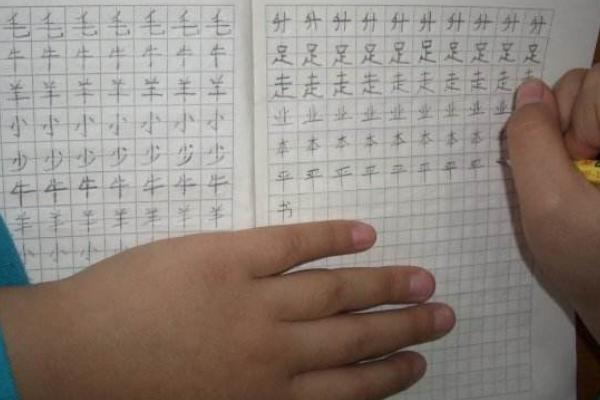 毛毛毛毛毛毛毛
牛牛牛牛牛牛牛
羊羊羊羊羊羊羊
小小小小小小小
少少少少少少少
牛牛牛牛牛牛牛
羊羊羊羊羊羊羊
小小小小
升升升升升升升升升升
足足足足足足足足足足
走走走走走走走走走走
业业业业业业业业业
本本本本本本本本本
平平平平平平平平
书